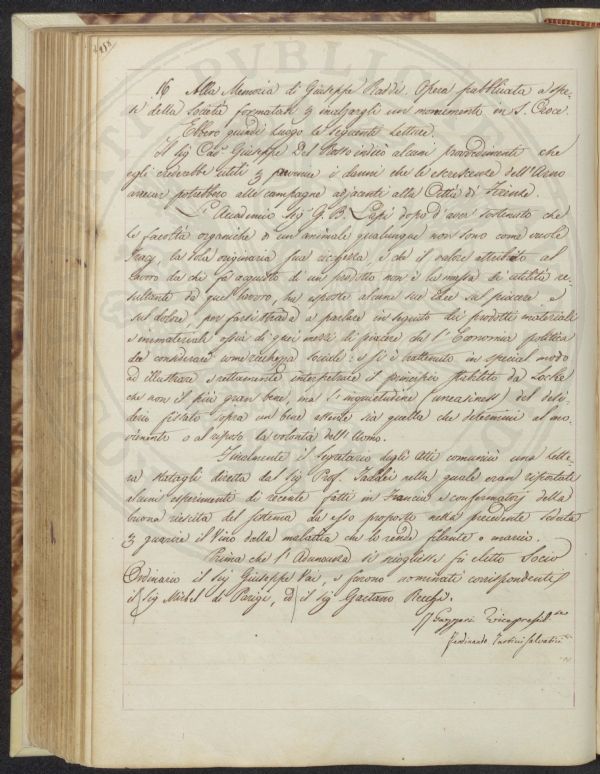 16 Alla Memoria di Giuseppe Raddi. Opera pubblicata a spe-
se della Società formatasi per inalzargli un monumento in S. Croce.
Ebbero quindi luogo le seguenti Letture.
Il Sig Cav Giuseppe Del Rosso indicò alcuni provvedimenti che
egli crederebbe utili per prevenire i danni che le escrescenze dell'Arno
arrecar potrebbero alle campagne adjacenti alla Città di Firenze.
L'Accademico Sig G. B. Lapi dopo d'aver sostenuto che
le facoltà organiche di un animale qualunque non sono come vuole
Tracy, la sola originaria sua ricchezza, e che il valore attribuito al
lavoro da chi fa acquisto di un prodotto non è la massa di utilità re-
sultante da quel lavoro, ha esposte alcune sue idee sul piacere e
sul dolore, per farsi strada a parlare in seguito dei prodotti materiali
e immateriali ossia di quei mezzi di piacere che l'Economia politica
dee considerare come ricchezza sociale: e si è trattenuto in special modo
ad illustrare e rettamente interpetrare il principio stabilito da Locke
che non il più gran bene, ma l'inquietudine (uneasiness) del desi-
derio fissato sopra un bene assente sia quella che determini al mo-
vimento o al riposo la volontà dell'Uomo.
Finalmente il Segretario degli Atti comunicò una Lette-
ra statagli diretta dal Sig Prof. Taddei nella quale eran riportati
alcuni esperimenti di recente fatti in Francia e confermatorj della
buona riescita del sistema da esso proposto nella precedente seduta
per guarire il Vino della malattia che lo rende filante o marcio.
Prima che l'Adunanza si sciogliesse fu eletto Socio
Ordinario il Sig Giuseppe Vai, e furono nominati corrispondenti
il Sig Michel di Parigi, ed il Sig Gaetano Recchi.
Gazzeri Vicepresid
Ferdinando Tartini Salvatici